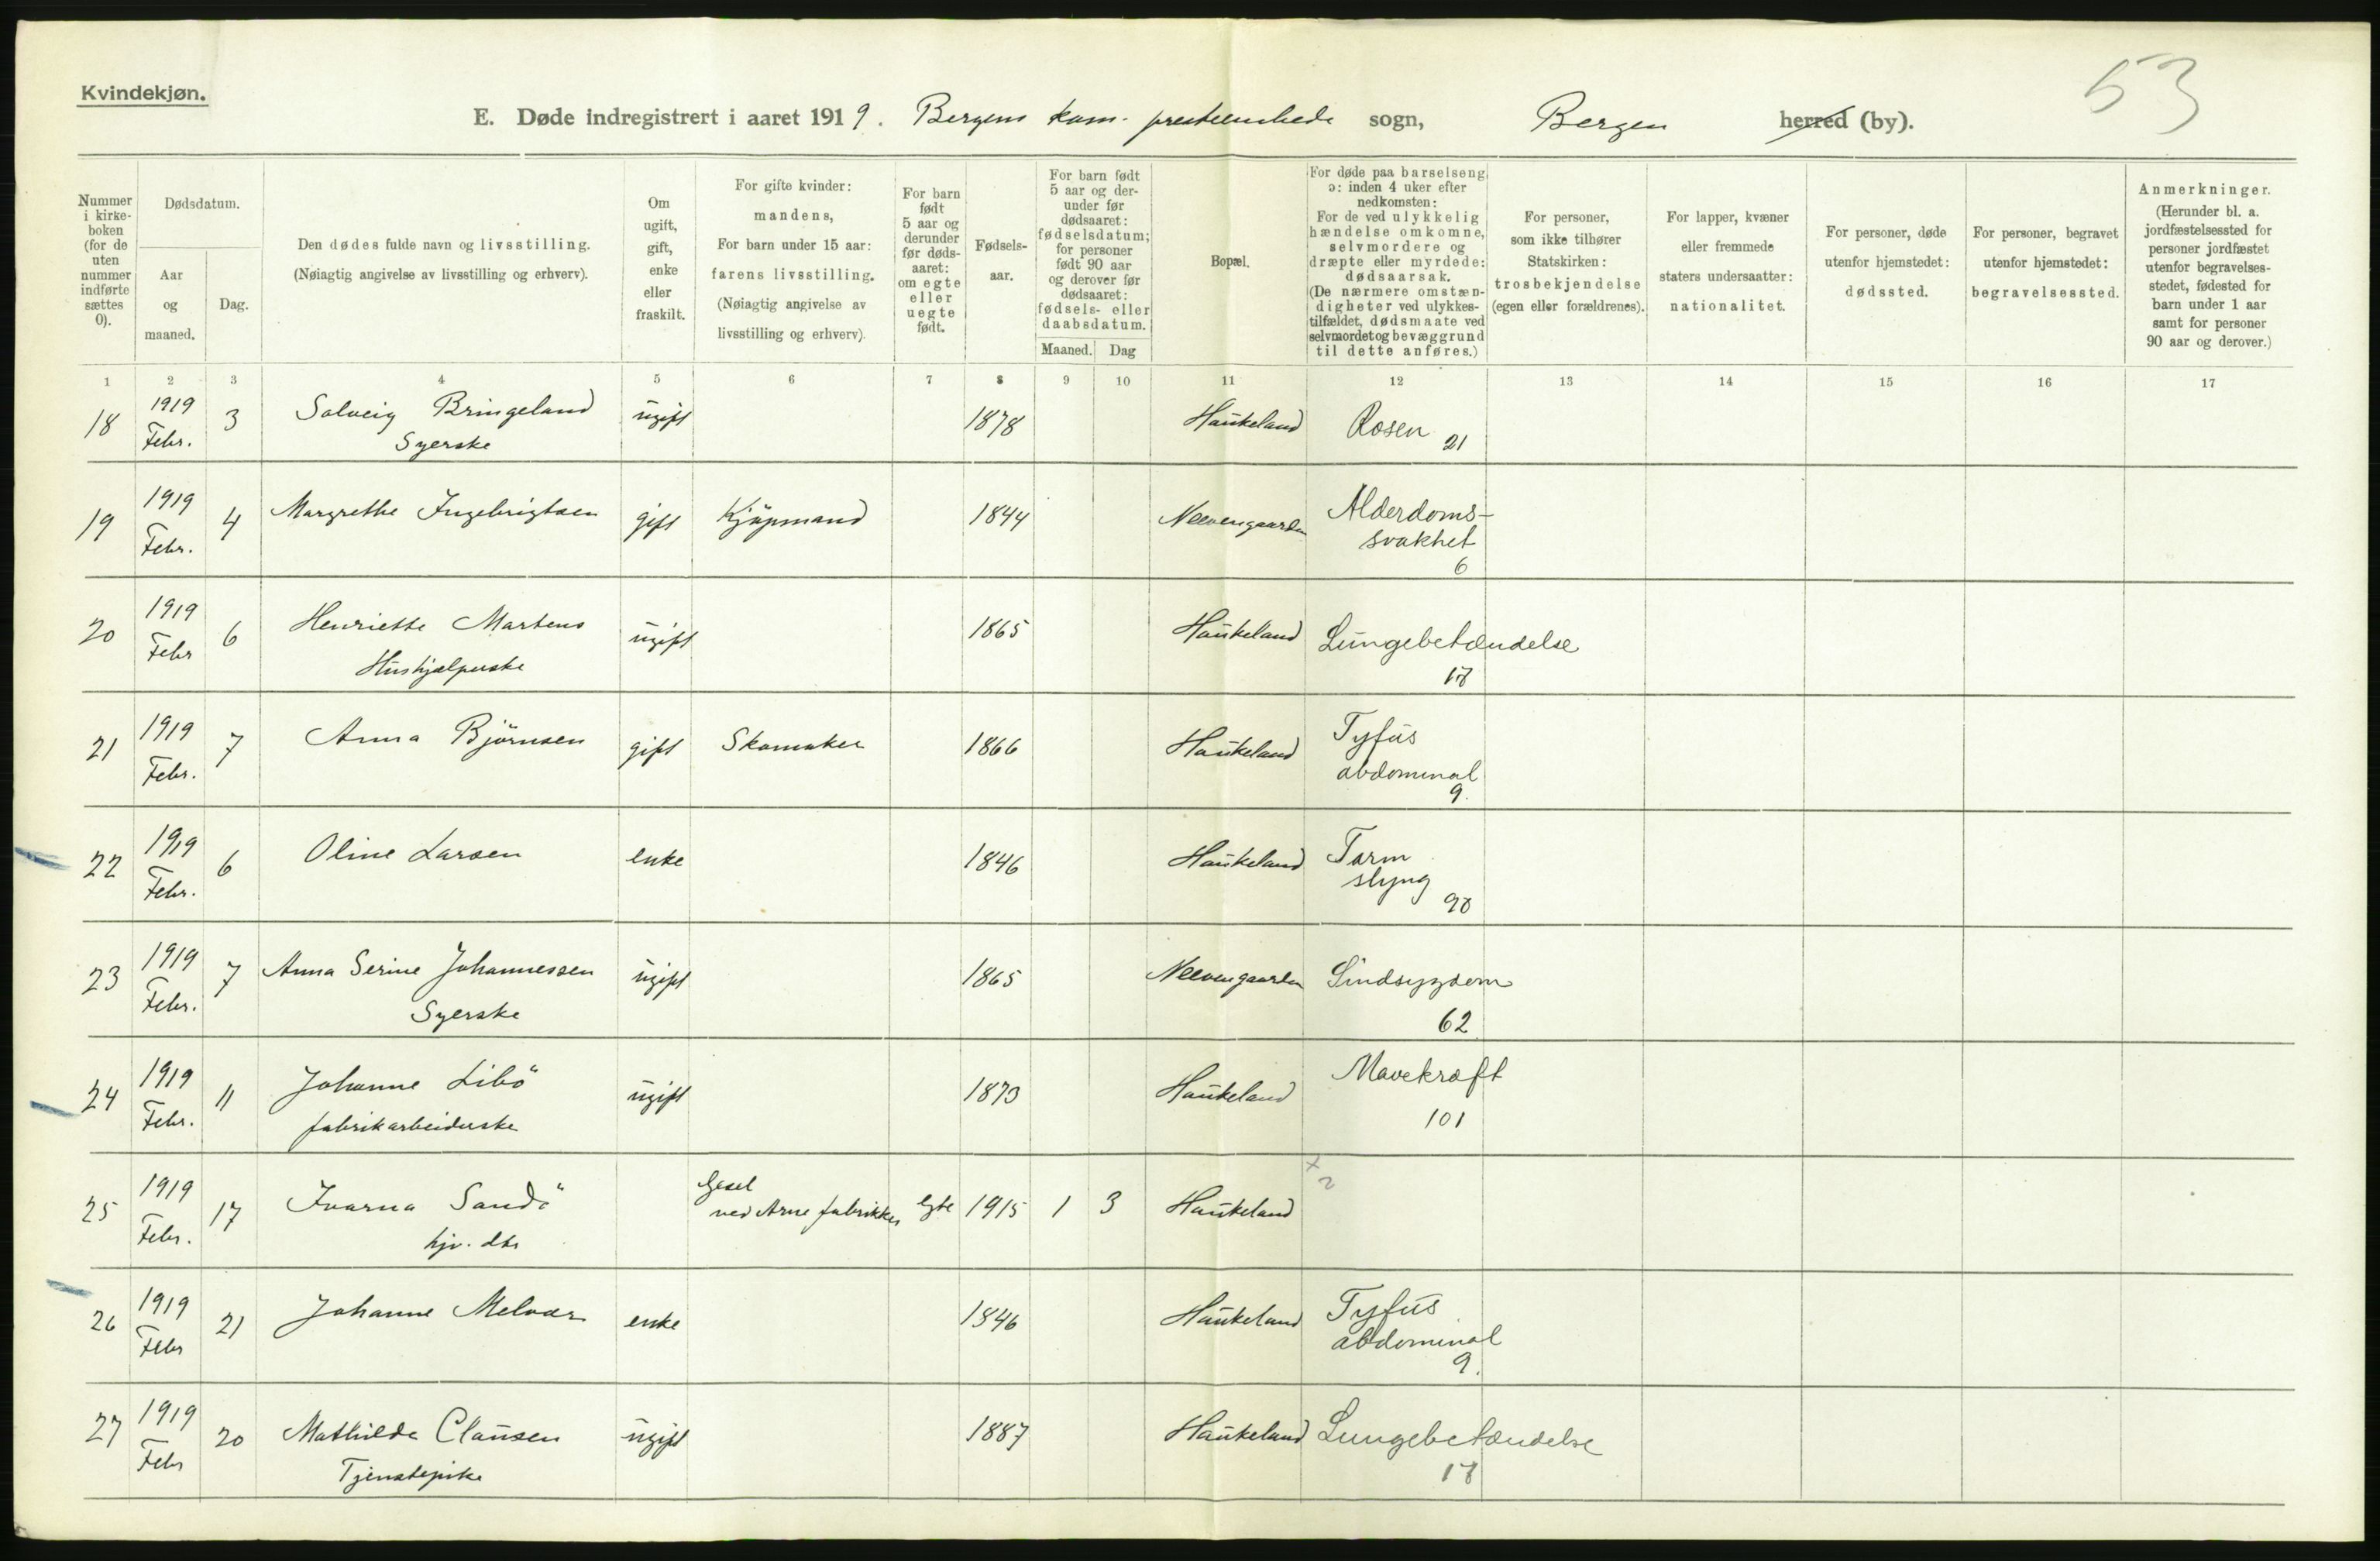 Kvindekjøn.
53
E. Døde indregistrert i aaret 1919. Bergens kom. presteembede sogn, Bergen herred (by).
Nummer i kirke-boken (for de uten nummer indførte sættes 0).
Dødsdatum.
Aar og maaned.
Dag.
Den dødes fulde navn og livsstilling.
(Nøiagtig angivelse av livsstilling og erhverv).
Om ugift, gift, enke eller fraskilt.
For gifte kvinder: mandens,
For barn under 15 aar: farens livsstilling.
(Nøiagtig angivelse av livsstilling og erhverv).
For barn født 5 aar og derunder før døds-aaret: om egte eller uegte født.
Fødsels-aar.
For barn født 5 aar og der-under før dødsaaret: fødselsdatum; for personer født 90 aar og derover før dødsaaret: fødsels- eller daabsdatum.
Maaned. Dag
Bopæl.
For døde paa barselseng ɔ: inden 4 uker efter nedkomsten:
For de ved ulykkelig hændelse omkomne, selvmordere og dræpte eller myrdede: dødsaarsak.
(De nærmere omstæn-digheter ved ulykkes-tilfældet, dødsmaate ved selvmordet og bevæggrund til dette anføres.)
For personer, som ikke tilhører Statskirken: trosbekjendelse (egen eller forældrenes).
For lapper, kvæner eller fremmede staters undersaatter: nationalitet.
For personer, døde utenfor hjemstedet: dødssted.
For personer, begravet utenfor hjemstedet: begravelsessted.
Anmerkninger.
(Herunder bl. a. jordfæstelsessted for personer jordfæstet utenfor begravelses-stedet, fødested for barn under 1 aar samt for personer 90 aar og derover.)
1 2 3 4 5 6 7 8 9 10 11 12 13 14 15 16 17
18 1919 Febr. 3 Solveig Bringeland ugift 1878 Haukeland Rosen 21
Syerske
19 1919 Febr. 4 Margrethe Ingebrigtsen gift Kjøpmand 1844 Neevengaarden Alderdoms-
svakhet
6
20 1919 Febr 6 Henriette Martens ugift 1865 Haukeland Lungebetændelse
Hushjælperske 17
21 1919 Febr. 7 Anna Björnsen gift Skomaker 1866 Haukeland Tyfus
abdominal
9.
22 1919 Febr. 6 Oline Larsen enke 1846 Haukeland Tarm
slyng
98
23 1919 Febr. 7 Anna Serine Johannessen ugift 1865 Neevengaarden Sindsygdom
Syerske 62
24 1919 Febr. 11 Johanne Libö ugift 1873 Haukeland Mavekræft
fabrikarbeiderske 101
25 1919 Febr. 17 Ivarna Sandö ved Arne fabrikker egte 1915 1 3 Haukeland
hjv. dtr
26 1919 Febr 21 Johanne Melvær enke 1846 Haukeland Tyfus
abdominal
9.
27 1919 Febr 20 Mathilda Clausen ugift 1887 Haukeland Lungebetændelse
Tjenestepike 17